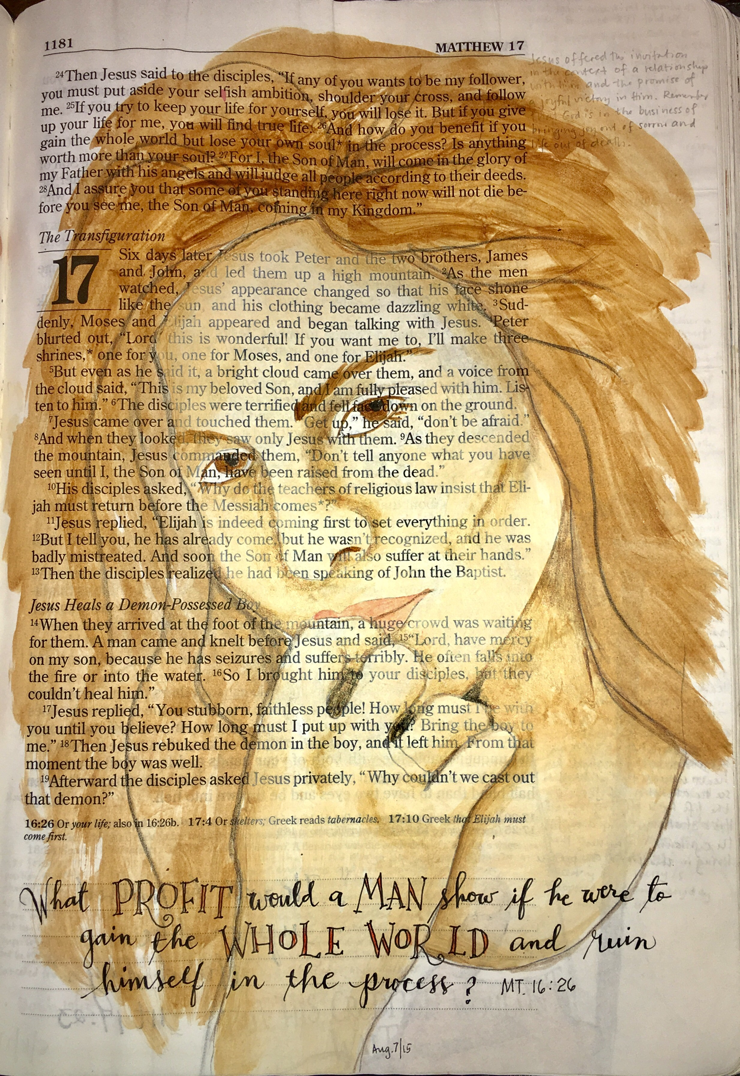 1181 MATTHEW 17
24Then Jesus said to the disciples, “If any of you wants to be my follower,
you must put aside your selfish ambition, shoulder your cross, and follow
me. 25If you try to keep your life for yourself, you will lose it. But if you give
up your life for me, you will find true life. 26And how do you benefit if you
gain the whole world but lose your own soul* in the process? Is anything
worth more than your soul? 27For I, the Son of Man, will come in the glory of
my Father with his angels and will judge all people according to their deeds.
28And I assure you that some of you standing here right now will not die be-
fore you see me, the Son of Man, coming in my Kingdom.”
Jesus offered the invitation
in the context of a relationship
and the promise of
joyful victory in Him. Remember
God is in the business of
bringing joy out of sorrow and
life out of death.
The Transfiguration
17 Six days later Jesus took Peter and the two brothers, James
and John, and led them up a high mountain. 2As the men
watched, Jesus’ appearance changed so that his face shone
like the sun, and his clothing became dazzling white. 3Sud-
denly, Moses and Elijah appeared and began talking with Jesus. 4Peter
blurted out, “Lord, this is wonderful! If you want me to, I’ll make three
shrines,* one for you, one for Moses, and one for Elijah.”
5But even as he said it, a bright cloud came over them, and a voice from
the cloud said, “This is my beloved Son, and I am fully pleased with him. Lis-
ten to him.” 6The disciples were terrified and fell face down on the ground.
7Jesus came over and touched them. “Get up,” he said, “don’t be afraid.”
8And when they looked, they saw only Jesus with them. 9As they descended
the mountain, Jesus commanded them, “Don’t tell anyone what you have
seen until I, the Son of Man, have been raised from the dead.”
10His disciples asked, “Why do the teachers of religious law insist that Eli-
jah must return before the Messiah comes*?”
11Jesus replied, “Elijah is indeed coming first to set everything in order.
12But I tell you, he has already come, but he wasn’t recognized, and he was
badly mistreated. And soon the Son of Man will also suffer at their hands.”
13Then the disciples realized he had been speaking of John the Baptist.
Jesus Heals a Demon-Possessed Boy
14When they arrived at the foot of the mountain, a huge crowd was waiting
for them. A man came and knelt before Jesus and said, 15“Lord, have mercy
on my son, because he has seizures and suffers terribly. He often falls into
the fire or into the water. 16So I brought him to your disciples, but they
couldn’t heal him.”
17Jesus replied, “You stubborn, faithless people! How long must I be with
you until you believe? How long must I put up with you? Bring the boy to
me.” 18Then Jesus rebuked the demon in the boy, and it left him. From that
moment the boy was well.
19Afterward the disciples asked Jesus privately, “Why couldn’t we cast out
that demon?”
16:26 Or your life; also in 16:26b. 17:4 Or shelters; Greek reads tabernacles. 17:10 Greek that Elijah must
come first.
What PROFIT would a MAN show if he were to
gain the WHOLE WORLD and ruin
himself in the process? MT. 16:26
Aug. 7/15